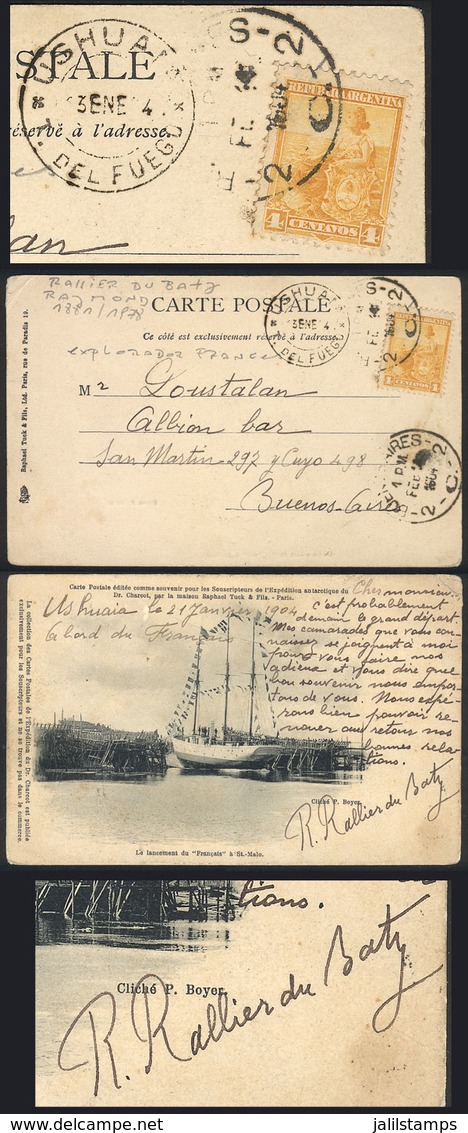 STALE
USHUAIA
* 3ENE 4 *
DEL FUEGO
réservé à l'adresse.
RES-2
1 PM
FE
1904
2
C
REPUBLICA ARGENTINA
4 CENTAVOS 4
lan
RALLIER DU BATY
RAYMOND
1881/1978
CARTE POSTALE
Ce côté est exclusivement réservé à l'adresse.
EXPLORADOR FRANCE
USHUAIA
* 3ENE 4 *
DEL FUEGO
RES-2
FE
1904
2
C
4 CENTAVOS 4
Mr Loustalan
Albion bar
San Martin 297 y Cuyo 498
Buenos-Aires
BUENOS AIRES-2
1 PM
FEB
1904
-2-
C
Raphael Tuck & Fils, Ltd. Paris, rue de Paradis 19.
Carte Postale éditée comme souvenir pour les Souscripteurs de l'Expédition antarctique du
Dr. Charcot, par la maison Raphael Tuck & Fils. - Paris.
La collection des Cartes Postales de l'Expédition du Dr. Charcot est publiée
exclusivement pour les Souscripteurs et ne se trouve pas dans le commerce.
Ushuaia le 21 Janvier 1904
à bord du Français
Cher monsieur
c'est probablement
demain le grand départ.
Mes camarades que vous con-
naissez se joignent à moi
pour vous faire nos
adieux et vous dire quel
bon souvenir nous empor-
tons de vous. Nous espé-
rons bien pouvoir re-
nouer au retour nos
bonnes rela-
tions.
R. Rallier du Baty
Cliché P. Boyer.
Le lancement du "Français" à St.-Malo.
tions.
Cliché P. Boyer.
R. Rallier du Baty
www.delcampe.net
jalilstamps